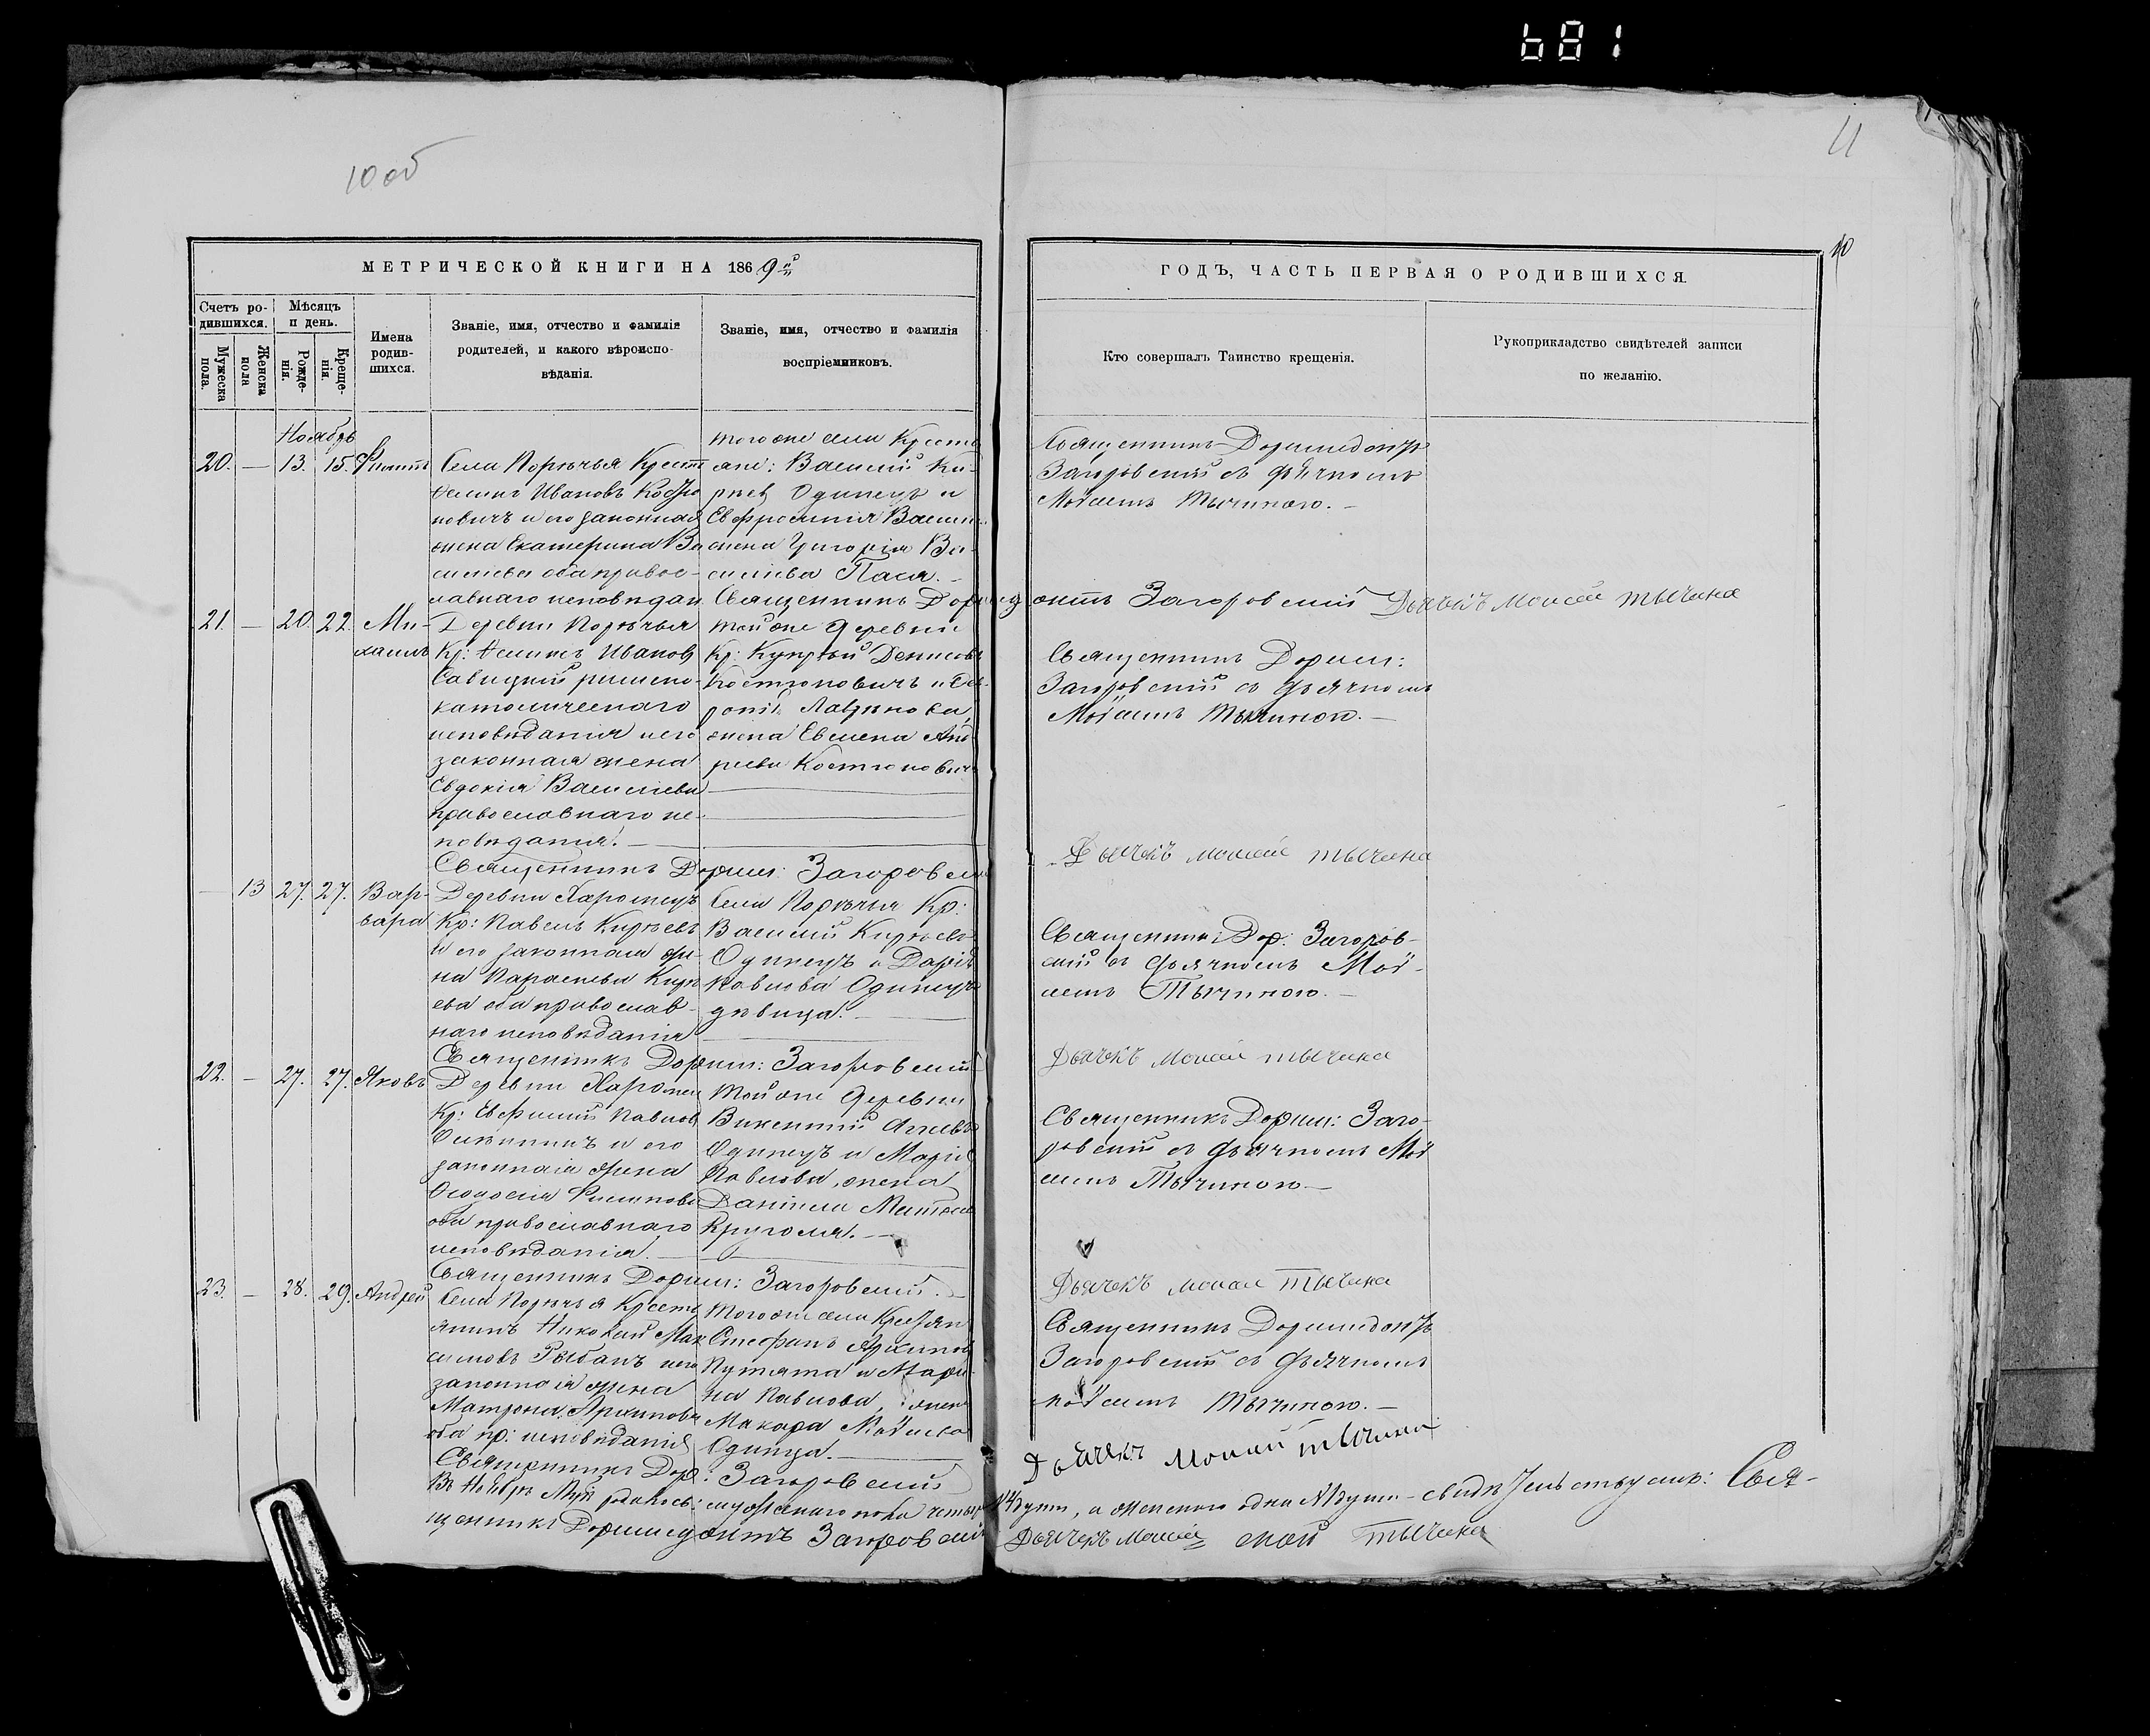 681
10 об
11
10
МЕТРИЧЕСКОЙ КНИГИ НА 1869 й
ГОДЪ, ЧАСТЬ ПЕРВАЯ О РОДИВШИХСЯ.
Счетъ ро-
дившихся.
Мужеска пола.
Женска пола
Мѣсяцъ
и день.
Рожде-
нія.
Креще-
нія.
Имена
родив-
шихся.
Званіе, имя, отчество и фамилія
родителей, и какого вѣроиспо-
вѣданія.
Званіе, имя, отчество и фамилія
воспріемниковъ.
Кто совершалъ Таинство крещенія.
Рукоприкладство свидѣтелей записи
по желанію.
Ноябрь
20. — 13. 15. Филиппъ
Села Порѣчья Крест
Иванов
и его законная
жена Екатерина Ва
силіева оба правос-
лавнаго исповѣдан
тогоже села Крестья
ане: Василій Ки-
Одинецъ и
Евфросинія Васил
жена Григорія Ва-
силіева Пася. -
Священникъ Доримедонтъ
Загоровскій съ дьячкомъ
Моѵсеемъ Тычиною. -
Священникъ Доримедонтъ Загоровскій Дьячекъ Моисей Тычина
21. — 20. 22. Ми-
хаилъ
Деревни Порѣчья
Кр: Иванов
Савицкій римско-
католическаго
исповѣданія и его
законная жена
Евдокія Василіева
православнаго ис-
повѣданія. -
той же деревни
Кр: Денисовъ
Костюковичъ и
жена Евсена Анд
реева Костюкович
Священникъ Дорим:
Загоровскій съ дьячкомъ
Моѵсеемъ Тычиною. -
Священникъ Дорим: Загоровскій
Дьячекъ Моисей Тычина
— 13 27. 27. Вар-
вара
Деревни
Кр: Павелъ Киріевъ
и его законная же-
на Параскева Кирі
ева оба православ-
наго исповѣданія
Села Порѣчья Кр:
Василій Киріевъ
Одинецъ и Дарія
Павлова Одинецъ
дѣвица. -
Священникъ Дор: Загоров-
скій съ дьячкомъ Моѵ-
сеемъ Тычиною. -
Священикъ Дорим: Загоровскій
Дьячекъ Моисей Тычина
22. — 27. 27. Яковъ
Деревни
Кр: Евфимій Павлов
и его
законная жена
Феодосія Филипова
оба православнаго
исповѣданія. -
той же деревни
Викентій
Одинецъ и Марія
Павлова, жена
Даніила
Священникъ Дорим: Заго-
ровскій съ дьячкомъ Моѵ
сеемъ Тычиною. -
Священникъ Дорим: Загоровскій. -
Дьячекъ Моисей Тычина
23. — 28. 29. Андрей
Села Порѣчья Крестья
янинъ Николай Мак
симовъ Рыбакъ и его
законная жена
Матрона Архипова
оба пр: исповѣданія
Тогоже села Крестьян
Стефанъ Архипов
Путята и Мари-
на Павлова, жена
Макара Моѵсеева
Одинца. -
Священникъ Доримедонтъ
Загоровскій съ дьячкомъ
Моѵсеемъ Тычиною. -
Священникъ Дор: Загоровскій
Дьячекъ Моисей Тычина
Въ Ноябрѣ родилось: мужескаго пола четыре души, а женскаго одна душа - свидѣтельствуемъ: Свя-
щенникъ Доримедонтъ Загоровскій Дьячекъ Моисей Тычина